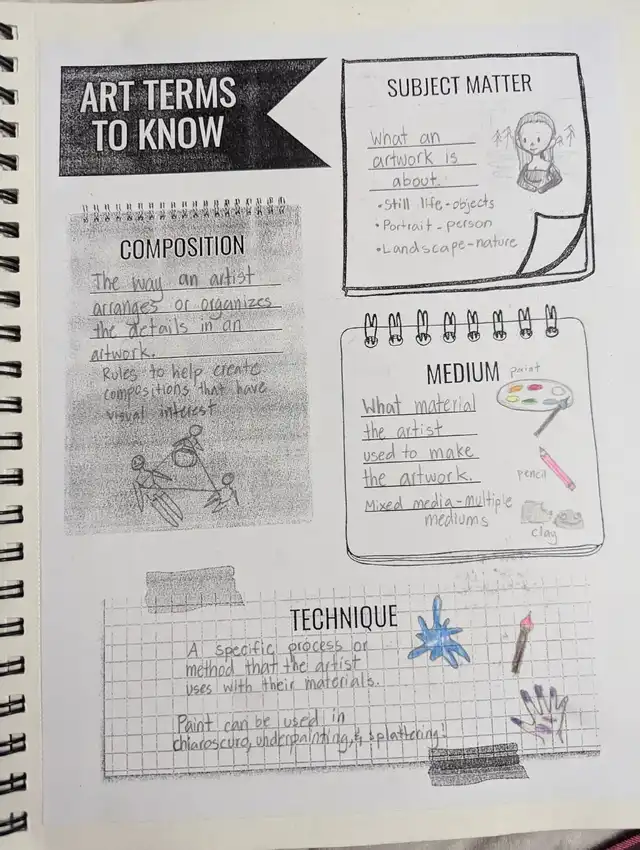 ART TERMS
TO KNOW
SUBJECT MATTER
What an
artwork is
about.
• Still life - objects
• Portrait - person
• Landscape - nature
COMPOSITION
The way an artist
arranges or organizes
the details in an
artwork.
Rules to help create
compositions that have
visual interest
MEDIUM
paint
What material
the artist
used to make
the artwork.
pencil
Mixed media - multiple
mediums
clay
TECHNIQUE
A specific process or
method that the artist
uses with their materials.
Paint can be used in
chiaroscuro, underpainting, & splattering!